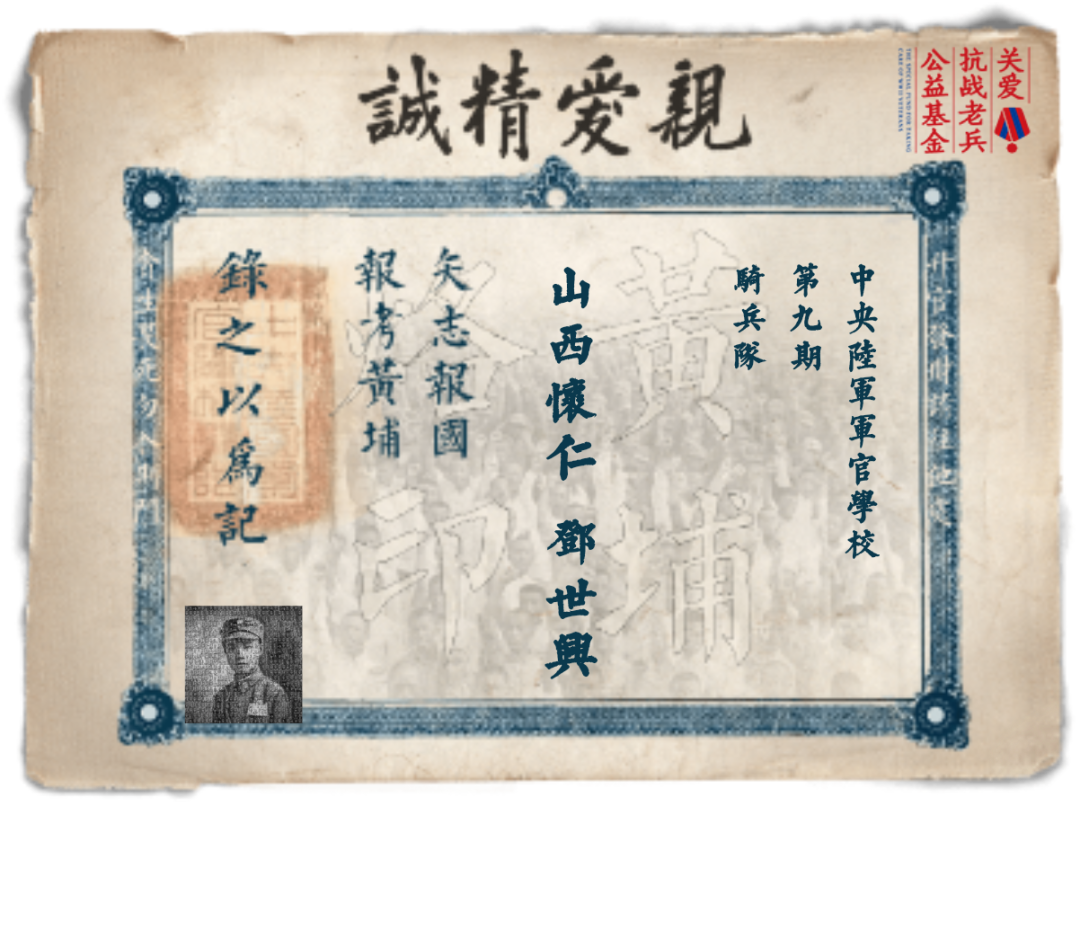 親愛精誠
关爱
抗战老兵
公益基金
THE SPECIAL FUND FOR TAKING
CARE OF WWII VETERANS
中央陸軍軍官學校
第九期
騎兵隊
山西懷仁 鄧世興
矢志報國
報考黃埔
錄之以為記
黃埔
烙印